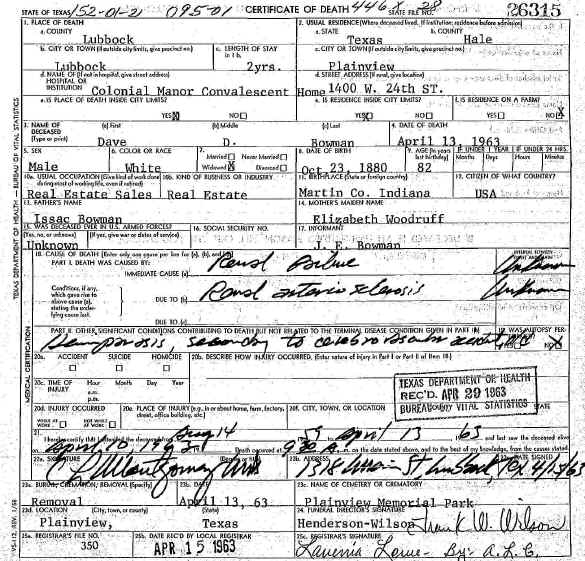 STATE OF TEXAS 152-01-21 095-01 CERTIFICATE OF DEATH 446X 28 STATE FILE NO. 26315
1. PLACE OF DEATH 2. USUAL RESIDENCE (Where deceased lived. If institution: residence before admission)
a. COUNTY Lubbock a. STATE Texas b. COUNTY Hale
b. CITY OR TOWN (If outside city limits, give precinct no.) Lubbock c. LENGTH OF STAY in 1 b. 2yrs. c. CITY OR TOWN (If outside city limits, give precinct no.) Plainview
d. NAME OF (If not in hospital, give street address) HOSPITAL OR INSTITUTION Colonial Manor Convalescent Home d. STREET ADDRESS (If rural, give location) 1400 W. 24th ST.
e. IS PLACE OF DEATH INSIDE CITY LIMITS? YES X NO e. IS RESIDENCE INSIDE CITY LIMITS? YES X NO f. IS RESIDENCE ON A FARM? YES NO X
3. NAME OF DECEASED (Type or print) (a) First Dave (b) Middle D. (c) Last Bowman 4. DATE OF DEATH April 13, 1963
5. SEX Male 6. COLOR OR RACE White 7. Married Never Married Widowed X Divorced 8. DATE OF BIRTH Oct 23, 1880 9. AGE (In years last birthday) 82 IF UNDER 1 YEAR Months Days IF UNDER 24 HRS. Hours Minutes
10a. USUAL OCCUPATION (Give kind of work done during most of working life, even if retired) Real Estate Sales 10b. KIND OF BUSINESS OR INDUSTRY Real Estate 11. BIRTHPLACE (State or foreign country) Martin Co. Indiana 12. CITIZEN OF WHAT COUNTRY? USA
13. FATHER'S NAME Issac Bowman 14. MOTHER'S MAIDEN NAME Elizabeth Woodruff
15. WAS DECEASED EVER IN U.S. ARMED FORCES? (Yes, no, or unknown) (If yes, give war or dates of service) Unknown 16. SOCIAL SECURITY NO. 17. INFORMANT J. E. Bowman
18. CAUSE OF DEATH [Enter only one cause per line for (a), (b), and (c).] INTERVAL BETWEEN ONSET AND DEATH
PART I. DEATH WAS CAUSED BY: IMMEDIATE CAUSE (a) Renal Failure Unknown
Conditions, if any, which gave rise to above cause (a), stating the underlying cause last. DUE TO (b) Renal arteriosclerosis Unknown
DUE TO (c)
PART II. OTHER SIGNIFICANT CONDITIONS CONTRIBUTING TO DEATH BUT NOT RELATED TO THE TERMINAL DISEASE CONDITION GIVEN IN PART I(a) 19. WAS AUTOPSY PERFORMED?
secondary to cerebrovascular accident YES NO X
20a. ACCIDENT SUICIDE HOMICIDE 20b. DESCRIBE HOW INJURY OCCURRED. (Enter nature of injury in Part I or Part II of item 18)
20c. TIME OF INJURY Hour a.m. p.m. Month Day Year
TEXAS DEPARTMENT OF HEALTH
REC'D. APR 29 1963
BUREAU OF VITAL STATISTICS
20d. INJURY OCCURRED WHILE AT WORK NOT WHILE AT WORK 20e. PLACE OF INJURY (e.g., in or about home, farm, factory, street, office building, etc.) 20f. CITY, TOWN, OR LOCATION COUNTY STATE
21. I hereby certify that I attended the deceased from Aug 14 59 April 13 63 and last saw the deceased alive
April 10 1963 Death occurred at 9:30 A. m. on the date stated above, and to the best of my knowledge, from the causes stated.
22a. SIGNATURE Montgomery MD (Degree or title) 22b. ADDRESS 1318 Main St Lubbock, Tex 22c. DATE SIGNED 4/15/63
23a. BURIAL, CREMATION, REMOVAL (Specify) Removal 23b. DATE April 13, 63 23c. NAME OF CEMETERY OR CREMATORY Plainview Memorial Park
23d. LOCATION (City, town, or county) (State) Plainview, Texas 24. FUNERAL DIRECTOR'S SIGNATURE Henderson-Wilson Frank W. Wilson
25a. REGISTRAR'S FILE NO. 350 25b. DATE REC'D BY LOCAL REGISTRAR APR 15 1963 25c. REGISTRAR'S SIGNATURE Lavenia Lowe - By: A.L.C.
TEXAS DEPARTMENT OF HEALTH — BUREAU OF VITAL STATISTICS
MEDICAL CERTIFICATION
VS-112, REV. 1/58